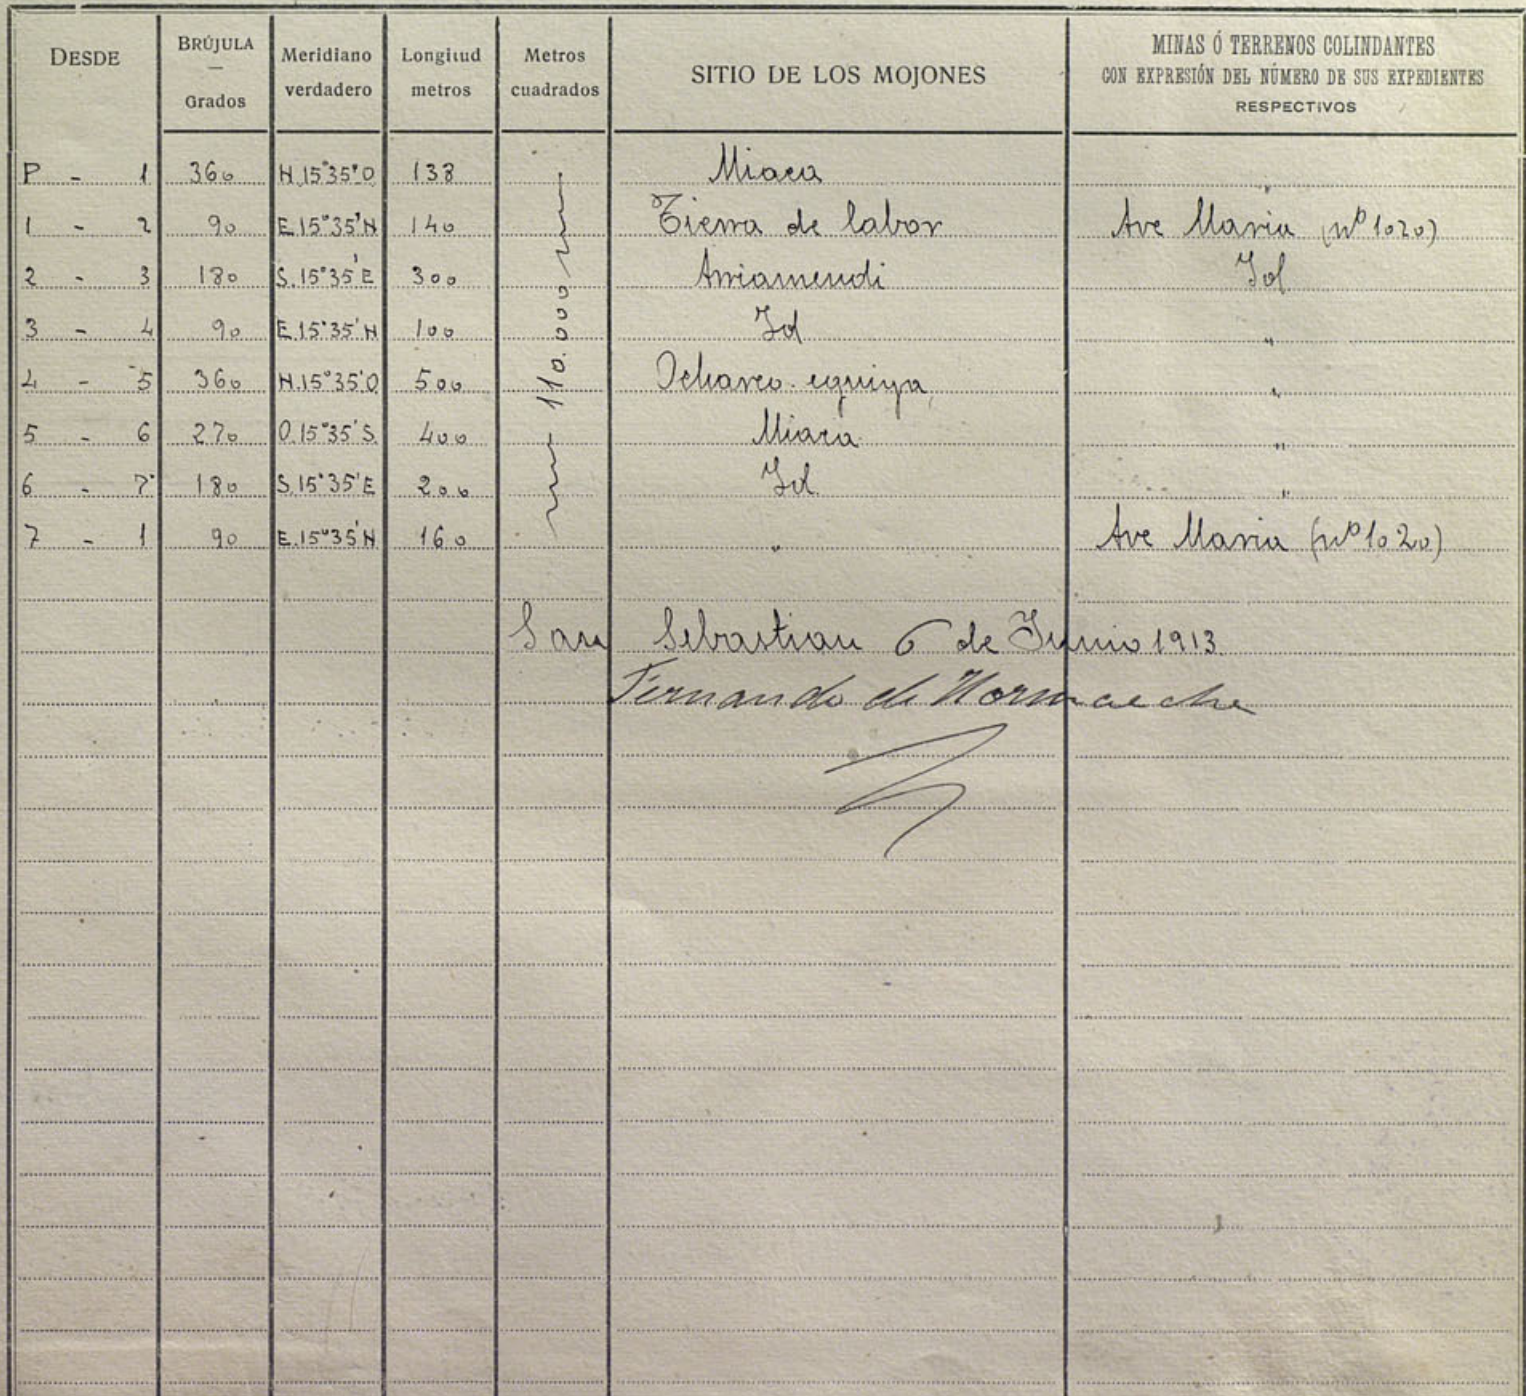 DESDE BRÚJULA — Grados Meridiano verdadero Longitud metros Metros cuadrados SITIO DE LOS MOJONES MINAS Ó TERRENOS COLINDANTES CON EXPRESIÓN DEL NÚMERO DE SUS EXPEDIENTES RESPECTIVOS
P - 1 360 N.15°35'O 138 Miaca "
1 - 2 90 E.15°35'N 140 Tierra de labor Ave Maria (nº 1020)
2 - 3 180 S.15°35'E 300 Arriamendi Id
3 - 4 90 E.15°35'N 100 Id "
4 - 5 360 N.15°35'O 500 "
5 - 6 270 O.15°35'S. 400 Miaca "
6 - 7 180 S.15°35'E 200 Id. "
7 - 1 90 E.15°35'N 160 " Ave Maria (nº 1020)
110.000
San Sebastian 6 de Junio 1913.
Fernando de Hormaeche